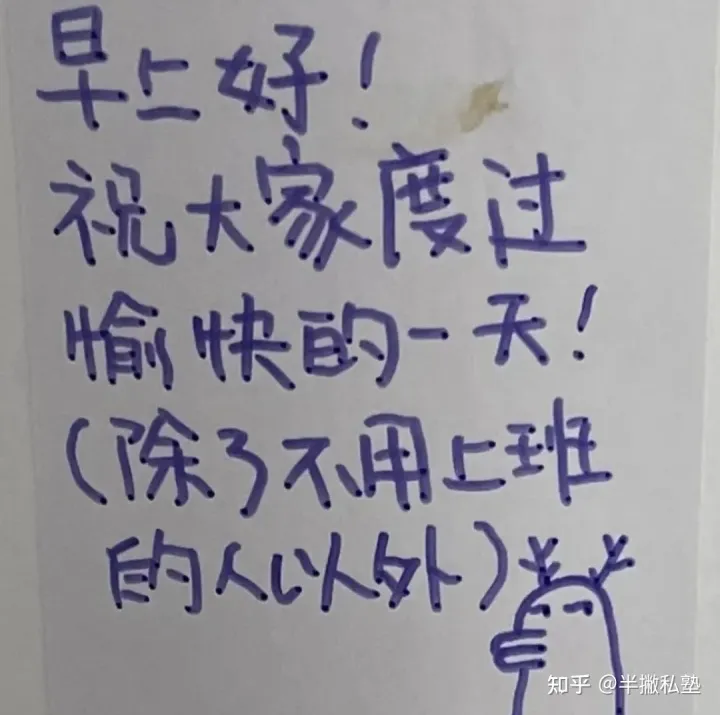 早上好！
祝大家度过
愉快的一天！
（除了不用上班
的人以外）
知乎 @半撇私塾